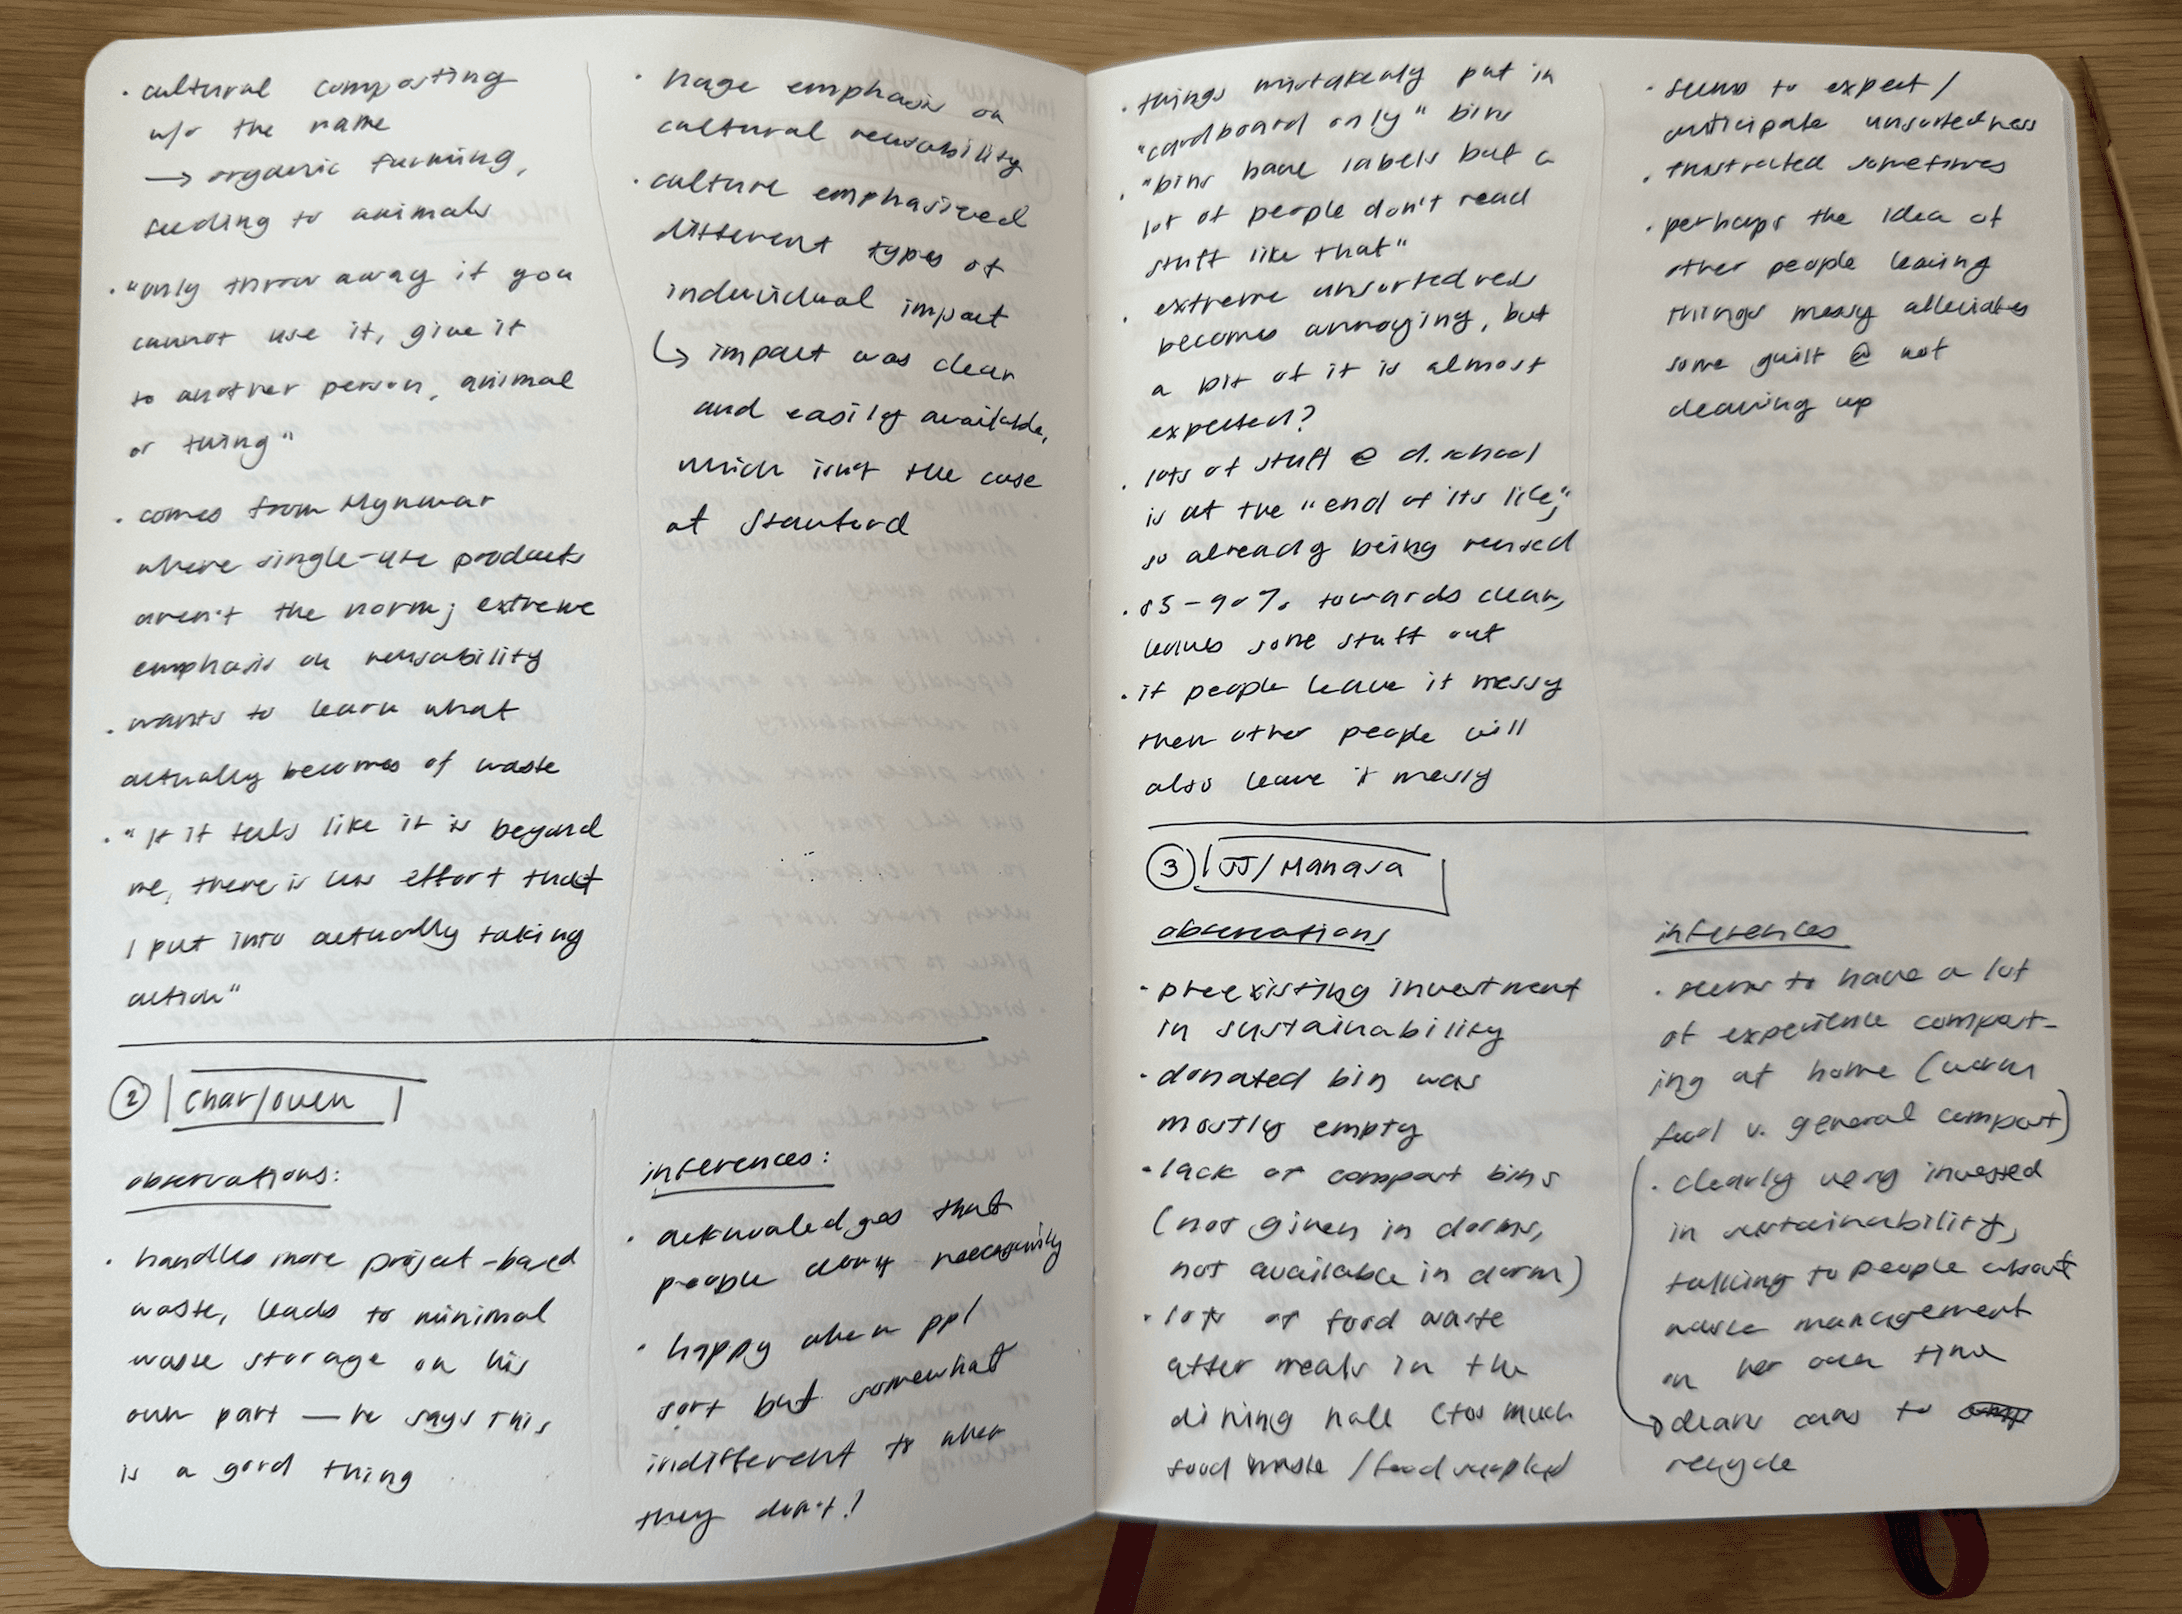 · cultural composting
w/o the name
→ organic farming,
feeding to animals
· "only throw away if you
cannot use it, give it
to another person, animal
or thing"
· comes from Mynmar
where single-use products
aren't the norm; extreme
emphasis on reusability
· wants to learn what
actually becomes of waste
· "If it feels like it is beyond
me, there is less effort that
I put into actually taking
action"
· huge emphasis on
cultural reusability
· culture emphasized
different types of
individual impact
↳ impact was clear
and easily available,
which isn't the case
at Stanford
② Char/Owen
observations:
· handles more project-based
waste, leads to minimal
waste storage on his
own part — he says this
is a good thing
inferences:
· acknowledges that
people don't necessarily
· happy when ppl
sort but somewhat
indifferent to when
they don't?
· things mistakenly put in
"cardboard only" bins
· "bins have labels but a
lot of people don't read
stuff like that"
· extreme unsortedness
becomes annoying, but
a bit of it is almost
expected?
· lots of stuff @ d.school
is at the "end of its life",
so already being reused
· 85-90% towards clean,
leaves some stuff out
· if people leave it messy
then other people will
also leave it messy
· seems to expect/
anticipate unsortedness
· frustrated sometimes
· perhaps the idea of
other people leaving
things messy alleviates
some guilt @ not
cleaning up
③ JJ/Manasa
observations
· preexisting investment
in sustainability
· donated bin was
mostly empty
· lack of compost bins
(not given in dorms,
not available in dorm)
· lots of food waste
after meals in the
dining hall (too much
food waste /food
inferences
· seems to have a lot
of experience compost-
ing at home (worm
food v. general compost)
· clearly very invested
in sustainability,
talking to people about
waste management
on her own time
→ cleans cans to
recycle